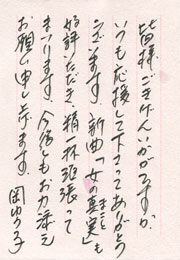 皆様ごきげんいかがですか。
いつも応援して下さってありがとう
ございます。新曲「女の真実」も
まこと
好評いただき、精一杯頑張って
まいります。今後もお力添え
お願い申し上げます。
岡ゆう子